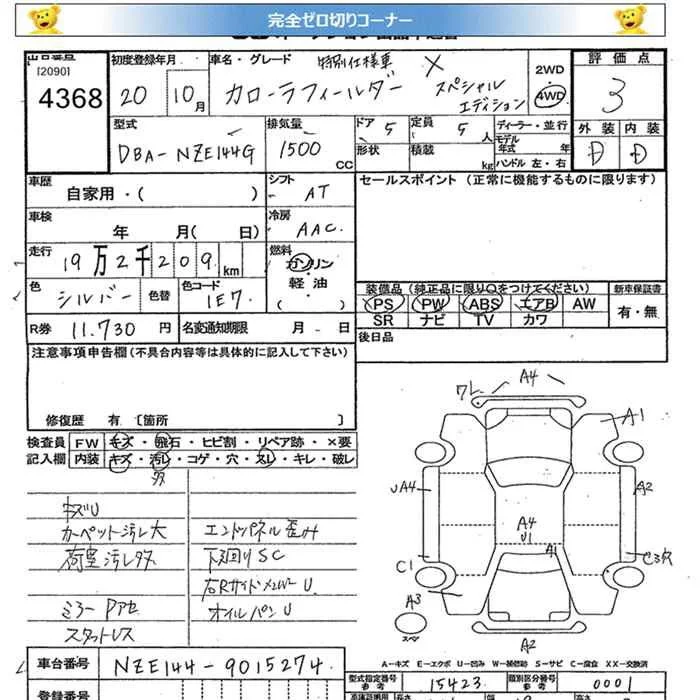 完全ゼロ切りコーナー
出品番号
[2090]
4368
初度登録年月
20 10月
車名・グレード
特別仕様車 X
カローラフィールダー スペシャル
エディション
2WD
4WD
評価点
3
外装 内装
D D
型式
DBA-NZE144G
排気量
1500 CC
ドア 5
形状
定員 5 人
積載 kg
ディーラー・並行
モデル
年式 年
ハンドル 左・右
車歴
自家用・( )
シフト
AT
セールスポイント (正常に機能するものに限ります)
車検
年 月( 日)
冷房
AAC
走行
19万2千209km
燃料
ガソリン
軽・油
( )
色
シルバー 色替
色コード
1E7
装備品 (純正品に限り○をつけてください)
新車保証書
PS PW ABS エアB AW
SR ナビ TV カワ
有・無
R券 11.730 円
名変通知期限 月 日
後日品
注意事項申告欄(不具合内容等は具体的に記入して下さい)
修復歴 有 〔箇所 〕
検査員 FW キズ・飛石・ヒビ割・リペア跡・×要
記入欄 内装 キズ・汚レ・コゲ・穴・スレ・キレ・破レ
タタ
キズU
カーペット汚レ大
荷室汚レタタ
ミラーPアセ
スタットレス
エンドパネル歪み
下廻りSC
右Rサイドメンバー U.
オイルパンU
ワレ A4
A1
UA4
A2
A4
U1
A1
C1
セミ穴
A3
スペ
A2
A-キズ E-エクボ U-凹み W-補修跡 S-サビ C-腐食 XX-交換済
車台番号 NZE144-9015274
型式指定番号
参考
15423
類別区分番号
参考
0001
登録番号